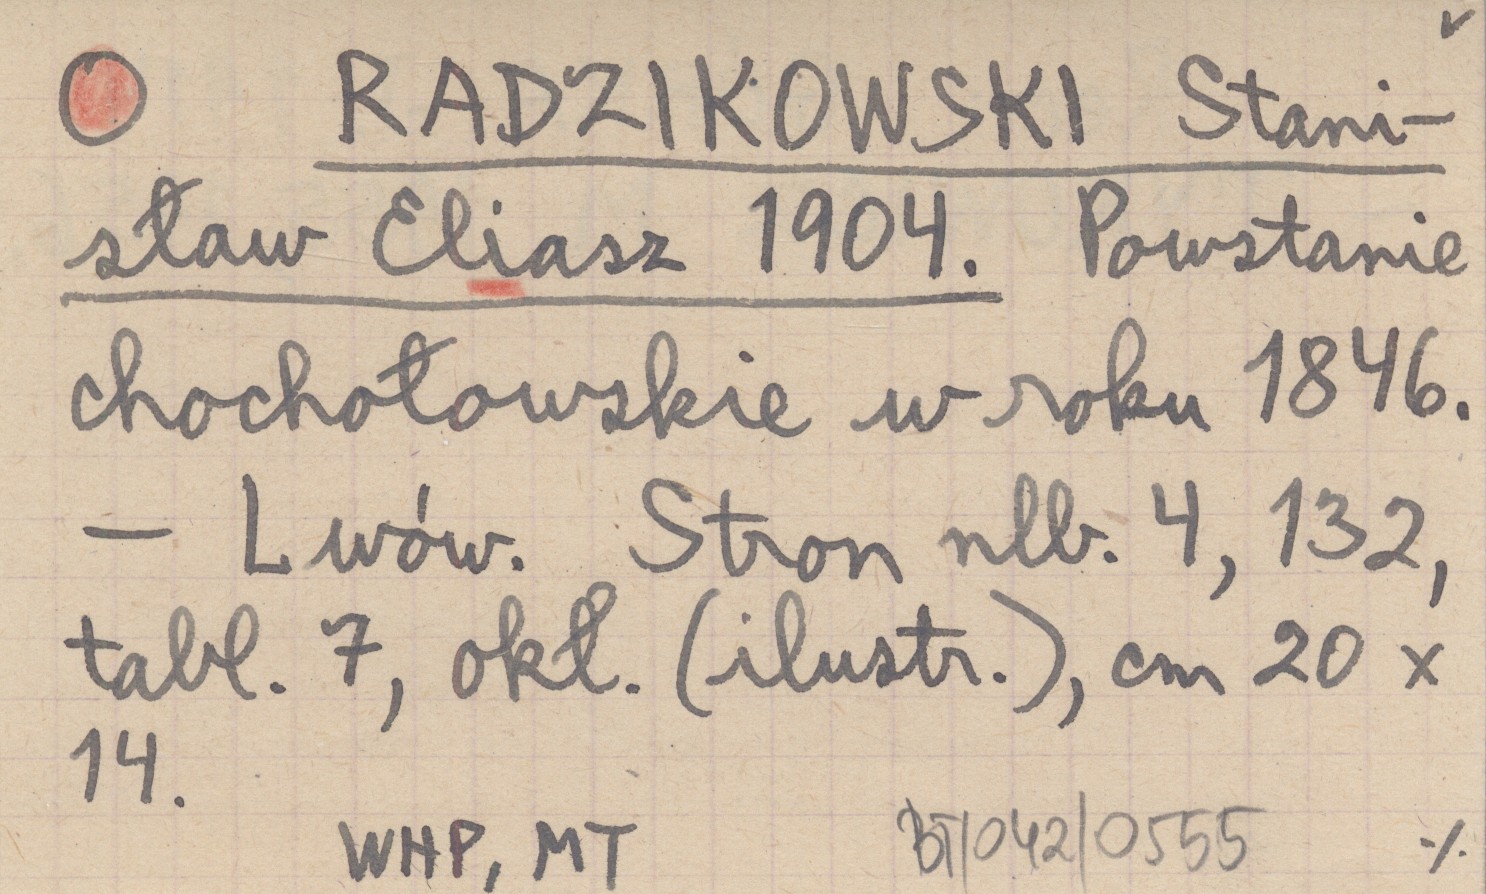 RADZIKOWSKI Stani-
sław Eliasz 1904. Powstanie
chochołowskie w roku 1846.
— Lwów. Stron nlb. 4, 132,
tabl. 7, okł. (ilustr.), cm 20 x
14.
WHP, MT BT/042/0555 ./.